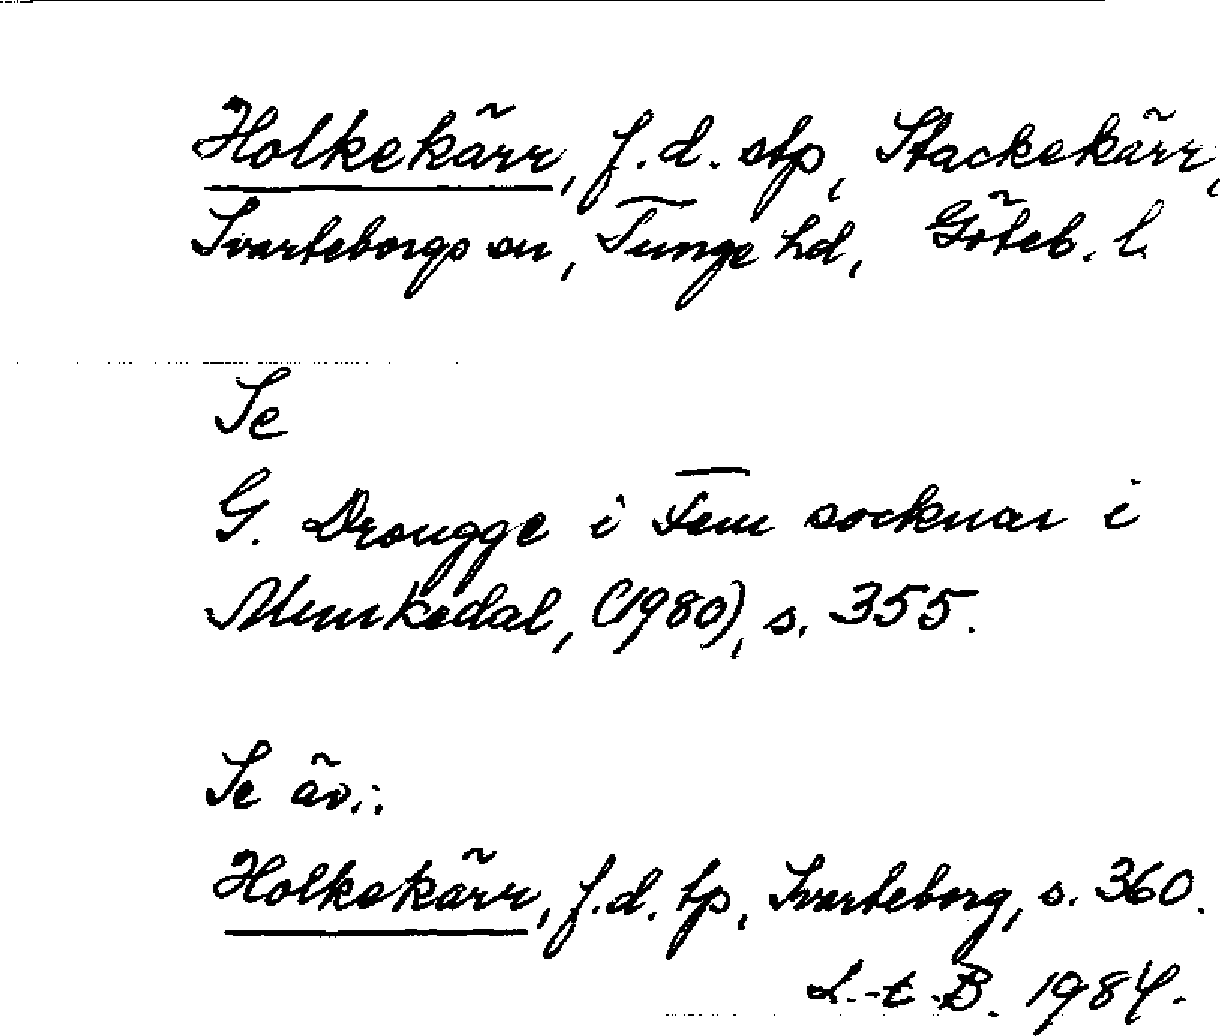 Holkekärr, f.d. stp, Stackekärr,
Svarteborgs sn, Tunge hd, Göteb. l.
Se
G. Drougge i Fem socknar i
Munkedal, (1980), s. 355.
Se äv.:
Holkekärr, f.d. tp, Svarteborg, s. 360.
L.-t B. 1984.